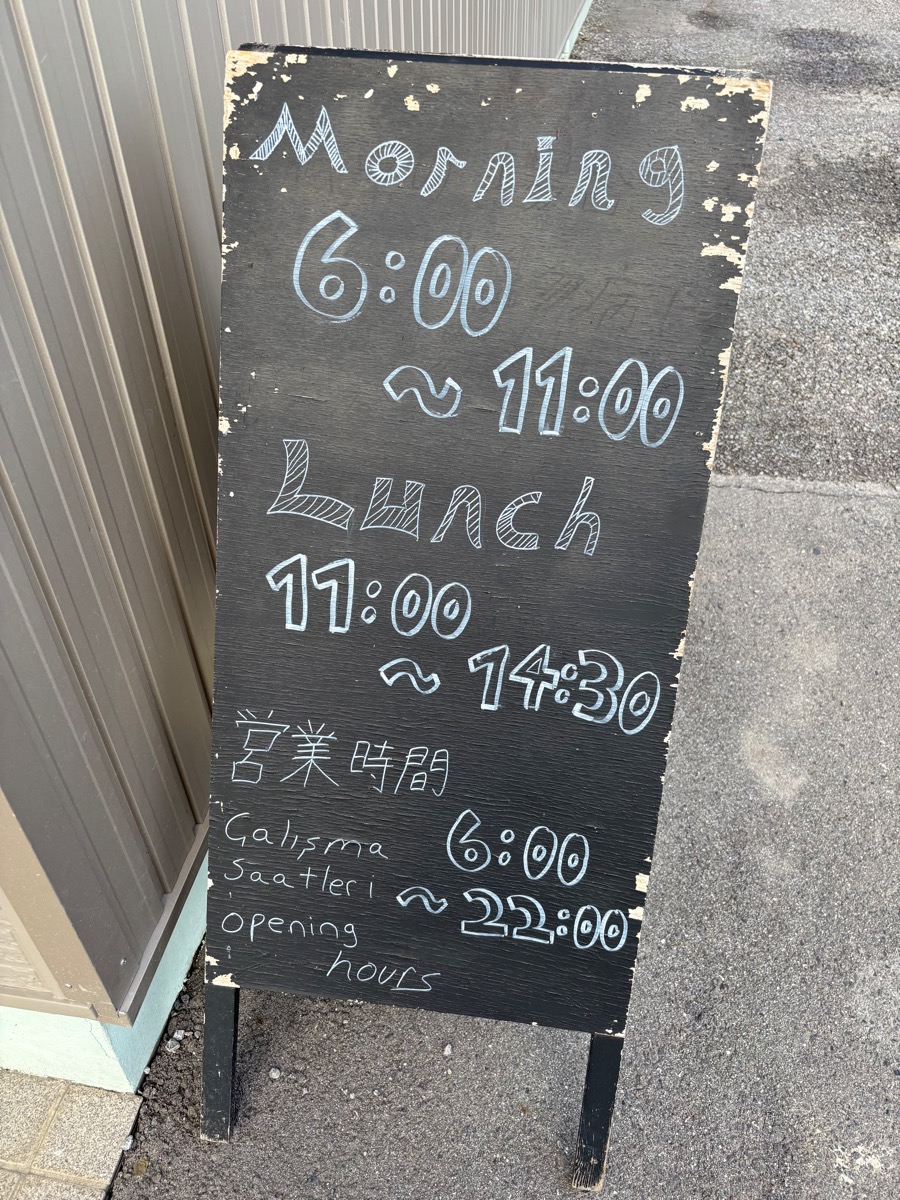 Morning
6:00
~ 11:00
Lunch
11:00
~ 14:30
営業時間
Çalışma
saatleri
opening
hours
6:00
~ 22:00